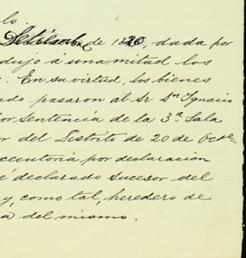 lo.
de 1820, dada por
dujo á una mitad los
. En su virtud, los bienes
ado pasaron al Sr Dn Ignacio
or Sentencia de la 3ª Sala
or del Distrito de 20 de Octe
ecutoria por declaracion
é declarado sucesor del
y, como tal, heredero de
a del mismo.